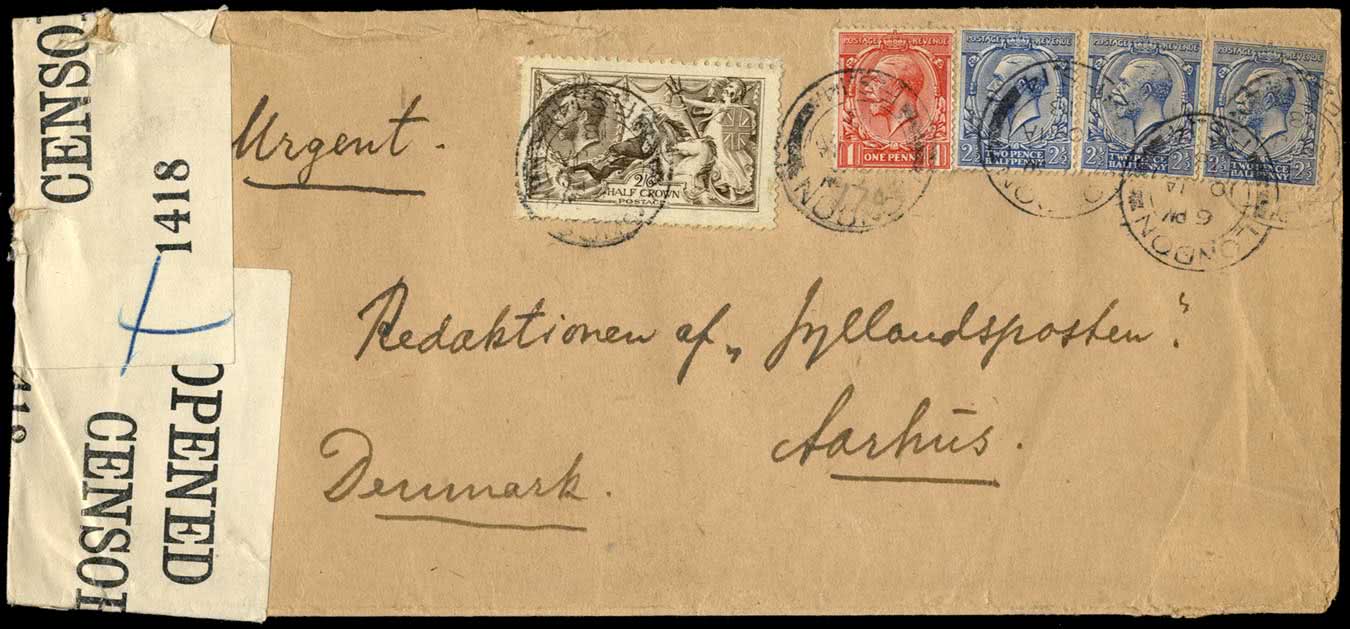 CENSO
1418
Urgent.
2/6
HALF CROWN
POSTAGE
POSTAGE REVENUE
1 ONE PENNY 1
POSTAGE REVENUE
2½ TWO PENCE HALFPENNY 2½
POSTAGE REVENUE
2½ TWO PENCE HALFPENNY 2½
POSTAGE REVENUE
2½ TWO PENCE HALFPENNY 2½
LONDON
6 PM
14
Redaktionen af „Jyllandsposten“.
Aarhūs.
Denmark.
OPENED
CENSO